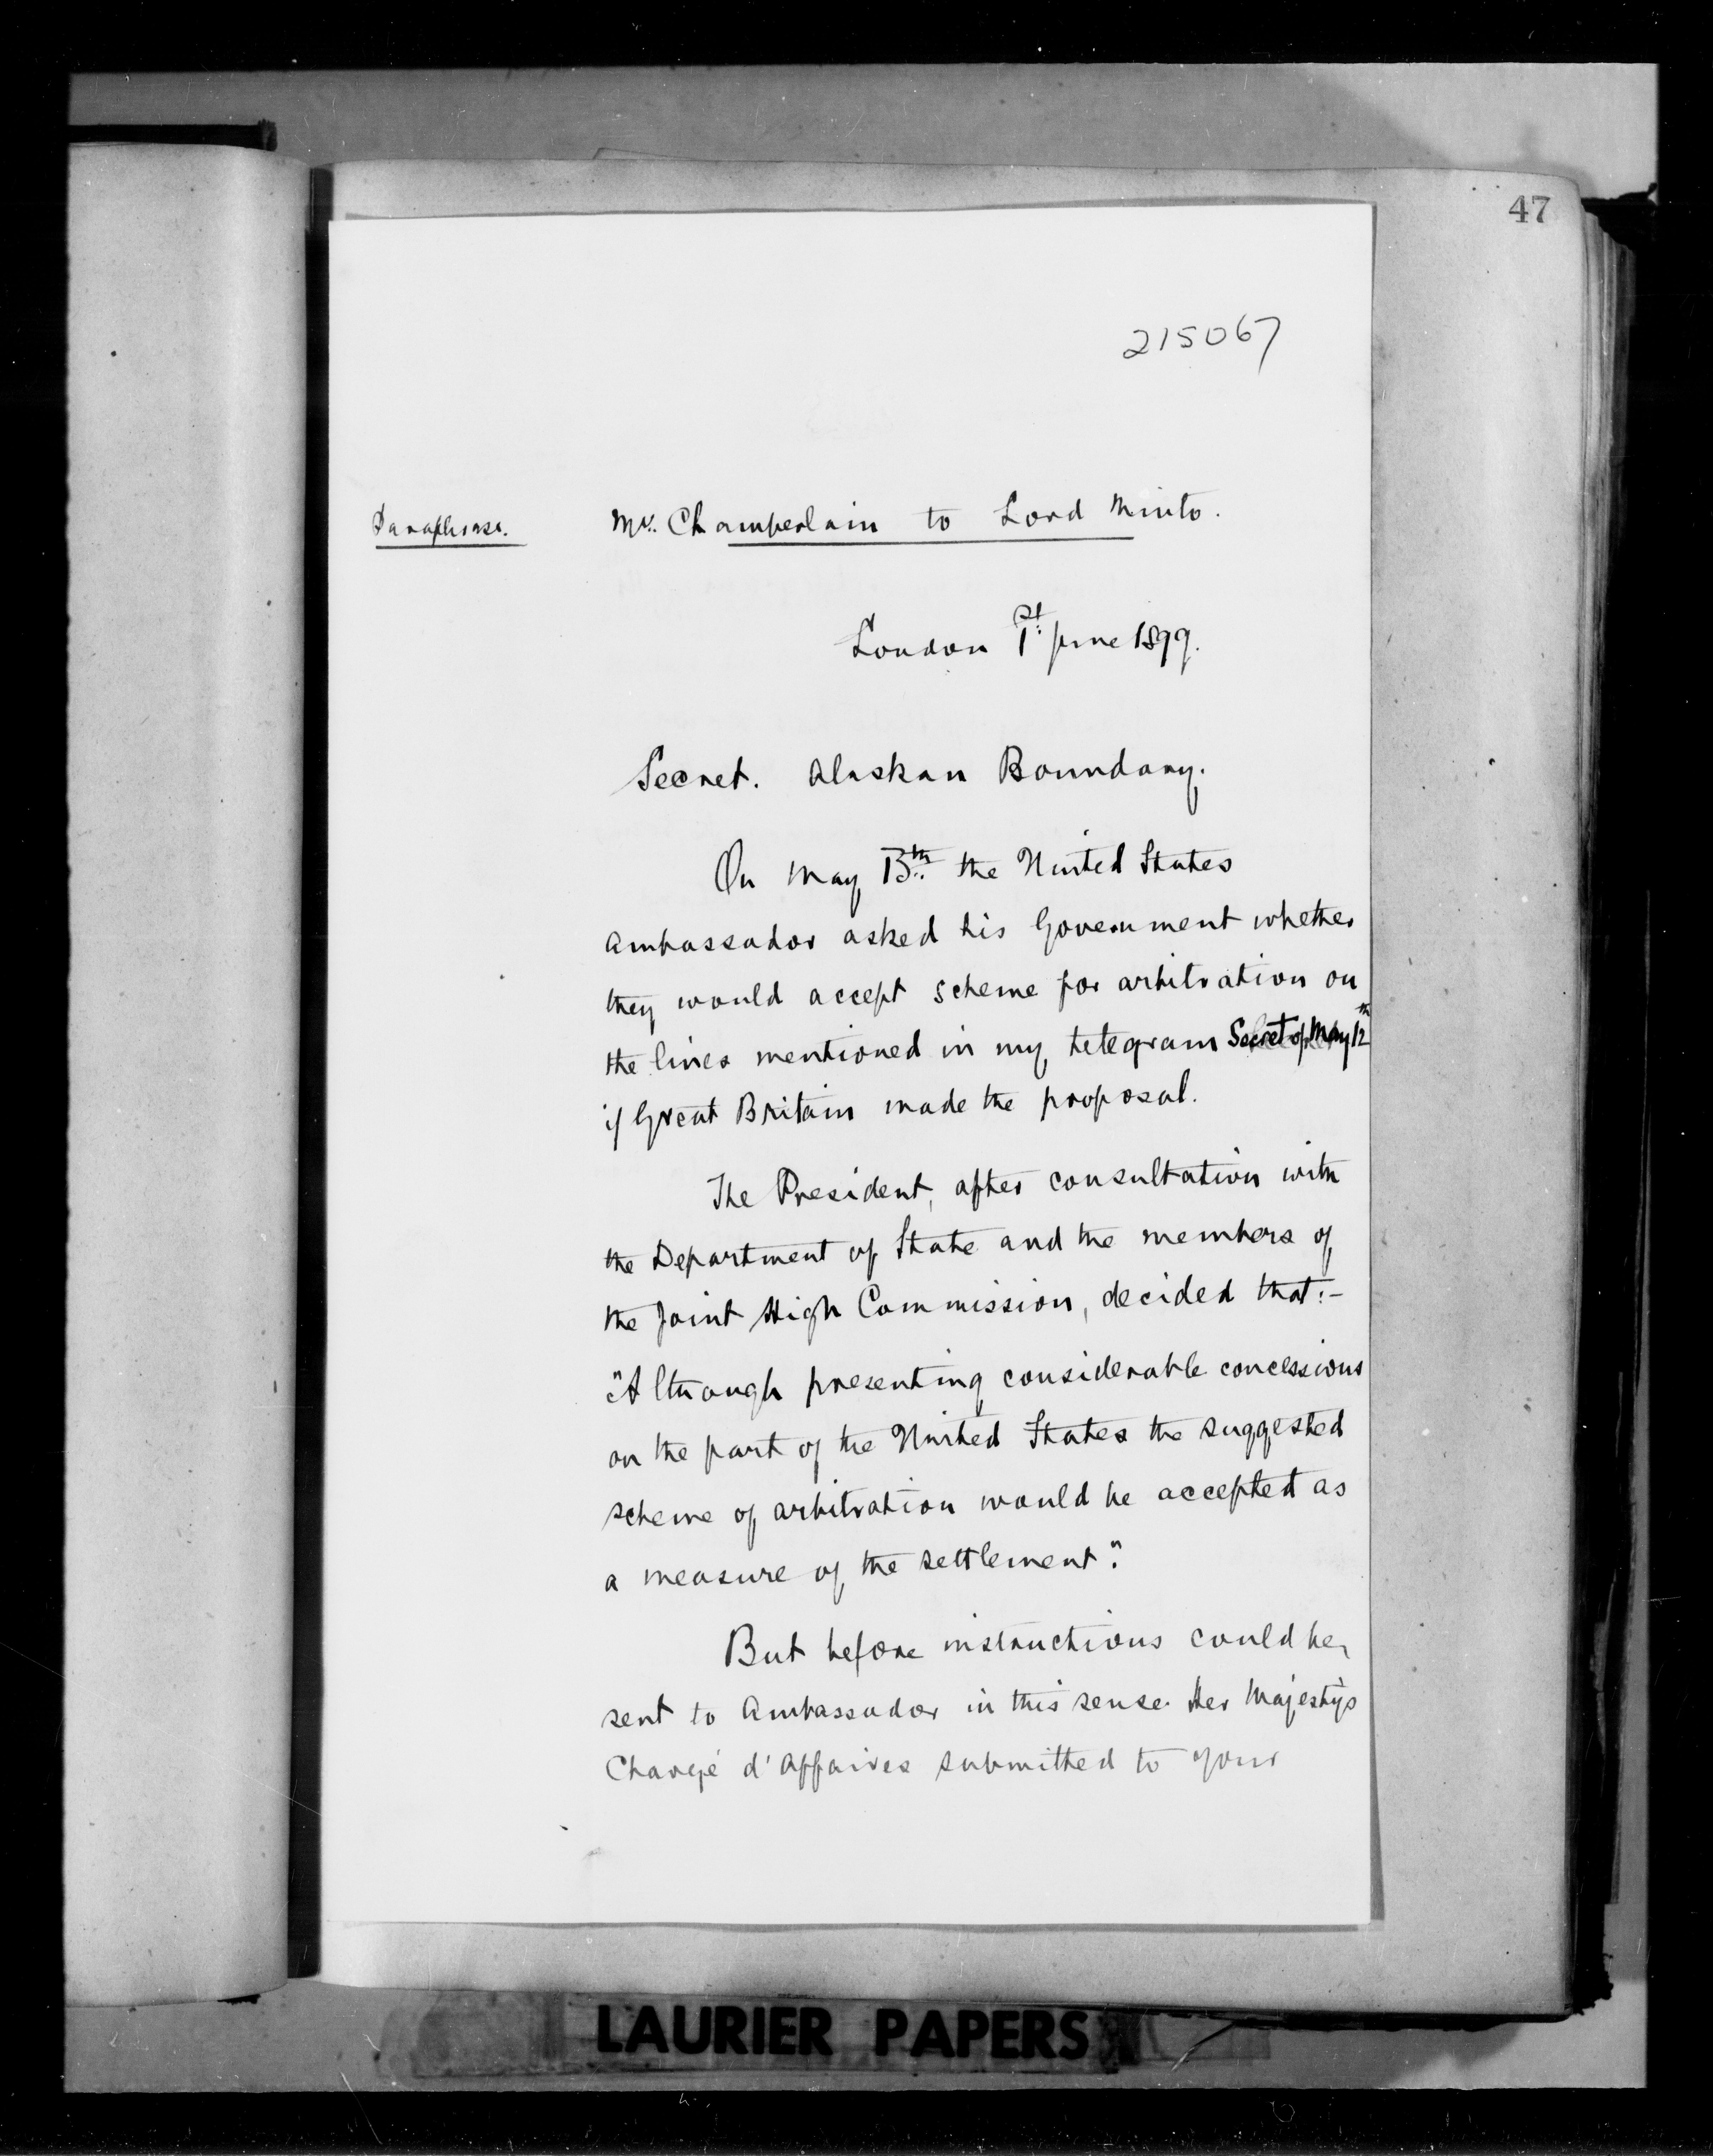 47
215067
Paraphrase.
Mr. Chamberlain to Lord Minto.
London 1st June 1899.
Secret. Alaskan Boundary.
On May 13th the United States
Ambassador asked his Government whether
they would accept scheme for arbitration on
the lines mentioned in my telegram Secret of May 12th
if Great Britain made the proposal.
The President, after consultation with
the Department of State and the members of
the Joint High Commission, decided that:-
"Although presenting considerable concessions
on the part of the United States the suggested
scheme of arbitration would be accepted as
a measure of the settlement".
But before instructions could be
sent to Ambassador in this sense Her Majesty's
Chargé d'Affaires submitted to your
LAURIER PAPERS